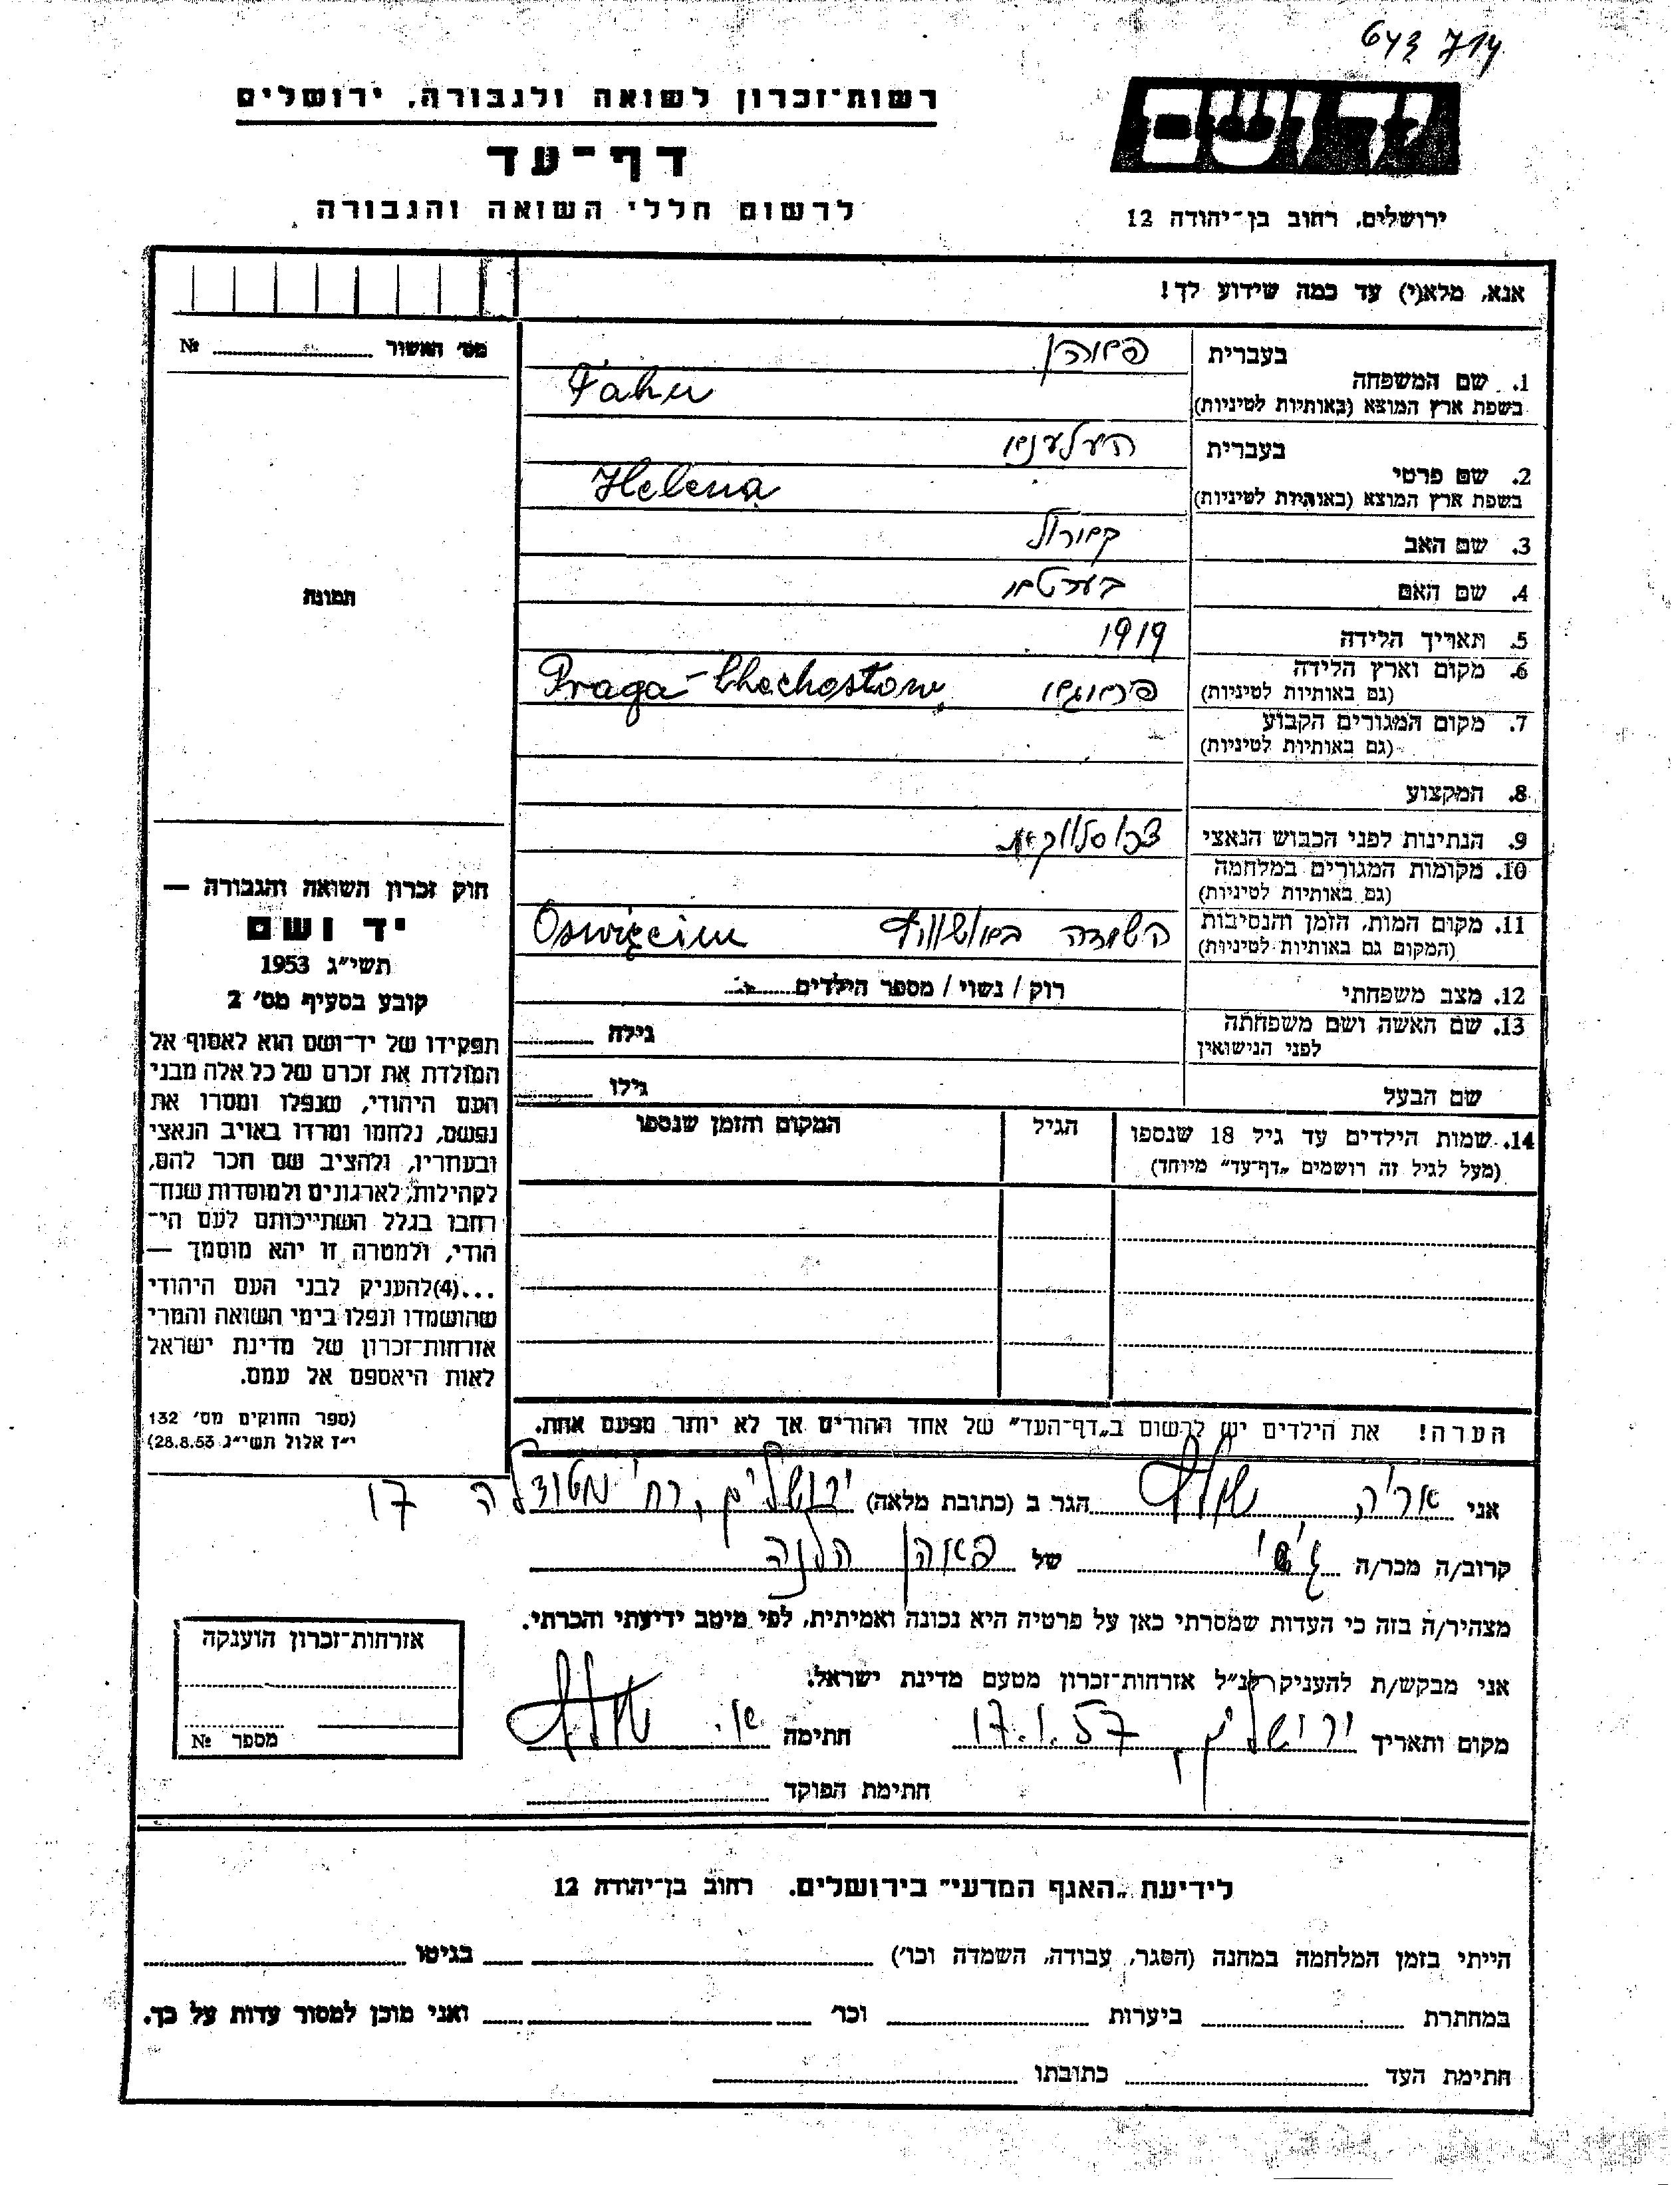 643 714
רשות־זכרון לשואה ולגבורה, ירושלים
יד ושם
דף־עד
לרשום חללי השואה והגבורה
ירושלים, רחוב בן־יהודה 12
אנא, מלא(י) עד כמה שידוע לך!
מס׳ האשור № 
בעברית
1. שם המשפחה
Fahn
בשפת ארץ המוצא (באותיות לטיניות)
בעברית העלענא
2. שם פרטי
Helena
בשפת ארץ המוצא (באותיות לטיניות)
3. שם האב קארל
4. שם האם בערטא
תמונה
5. תאריך הלידה 1919
6. מקום וארץ הלידה פראגא Praga-
(גם באותיות לטיניות)
7. מקום המגורים הקבוע
(גם באותיות לטיניות)
8. המקצוע
9. הנתינות לפני הכבוש הנאצי
10. מקומות המגורים במלחמה
(גם באותיות לטיניות)
11. מקום המות, הזמן והנסיבות Oswięcim
(המקום גם באותיות לטיניות)
12. מצב משפחתי רוק / נשוי / מספר הילדים
13. שם האשה ושם משפחתה
לפני הנישואין
גילה
שם הבעל גילו
14. שמות הילדים עד גיל 18 שנספו הגיל המקום והזמן שנספו
(מעל לגיל זה רושמים „דף־עד״ מיוחד)
חוק זכרון השואה והגבורה —
יד ושם
תשי״ג 1953
קובע בסעיף מס׳ 2
תפקידו של יד־ושם הוא לאסוף אל
המולדת את זכרם של כל אלה מבני
העם היהודי, שנפלו ומסרו את
נפשם, נלחמו ומרדו באויב הנאצי
ובעוזריו, ולהציב שם וזכר להם,
לקהילות, לארגונים ולמוסדות שנח־
רחבו בגלל השתייכותם לעם הי־
הודי, ולמטרה זו יהא מוסמך —
...(4)להעניק לבני העם היהודי
שהושמדו ונפלו בימי השואה והמרי
אזרחות־זכרון של מדינת ישראל
לאות היאספם אל עמם.
(ספר החוקים מס׳ 132
י״ז אלול תשי״ג 28.8.53)
הערה! את הילדים יש לרשום ב„דף־העד״ של אחד ההורים אך לא יותר מפעם אחת.
אני אריה הגר ב (כתובת מלאה) ירושלים, רח׳ מטודלה 17
קרוב/ה מכר/ה גיסי של פאהן הלנה
מצהיר/ה בזה כי העדות שמסרתי כאן על פרטיה היא נכונה ואמיתית, לפי מיטב ידיעתי והכרתי.
אני מבקש/ת להעניק לנ״ל אזרחות־זכרון מטעם מדינת ישראל.
מקום ותאריך ירושלים, 17.1.57 חתימה
חתימת הפוקד
אזרחות־זכרון הוענקה
מספר №
לידיעת „האגף המדעי״ בירושלים. רחוב בן־יהודה 12
הייתי בזמן המלחמה במחנה (הסגר, עבודה, השמדה וכו׳) בגיטו
במחתרת ביערות וכו׳ ואני מוכן למסור עדות על כך.
חתימת העד כתובתו